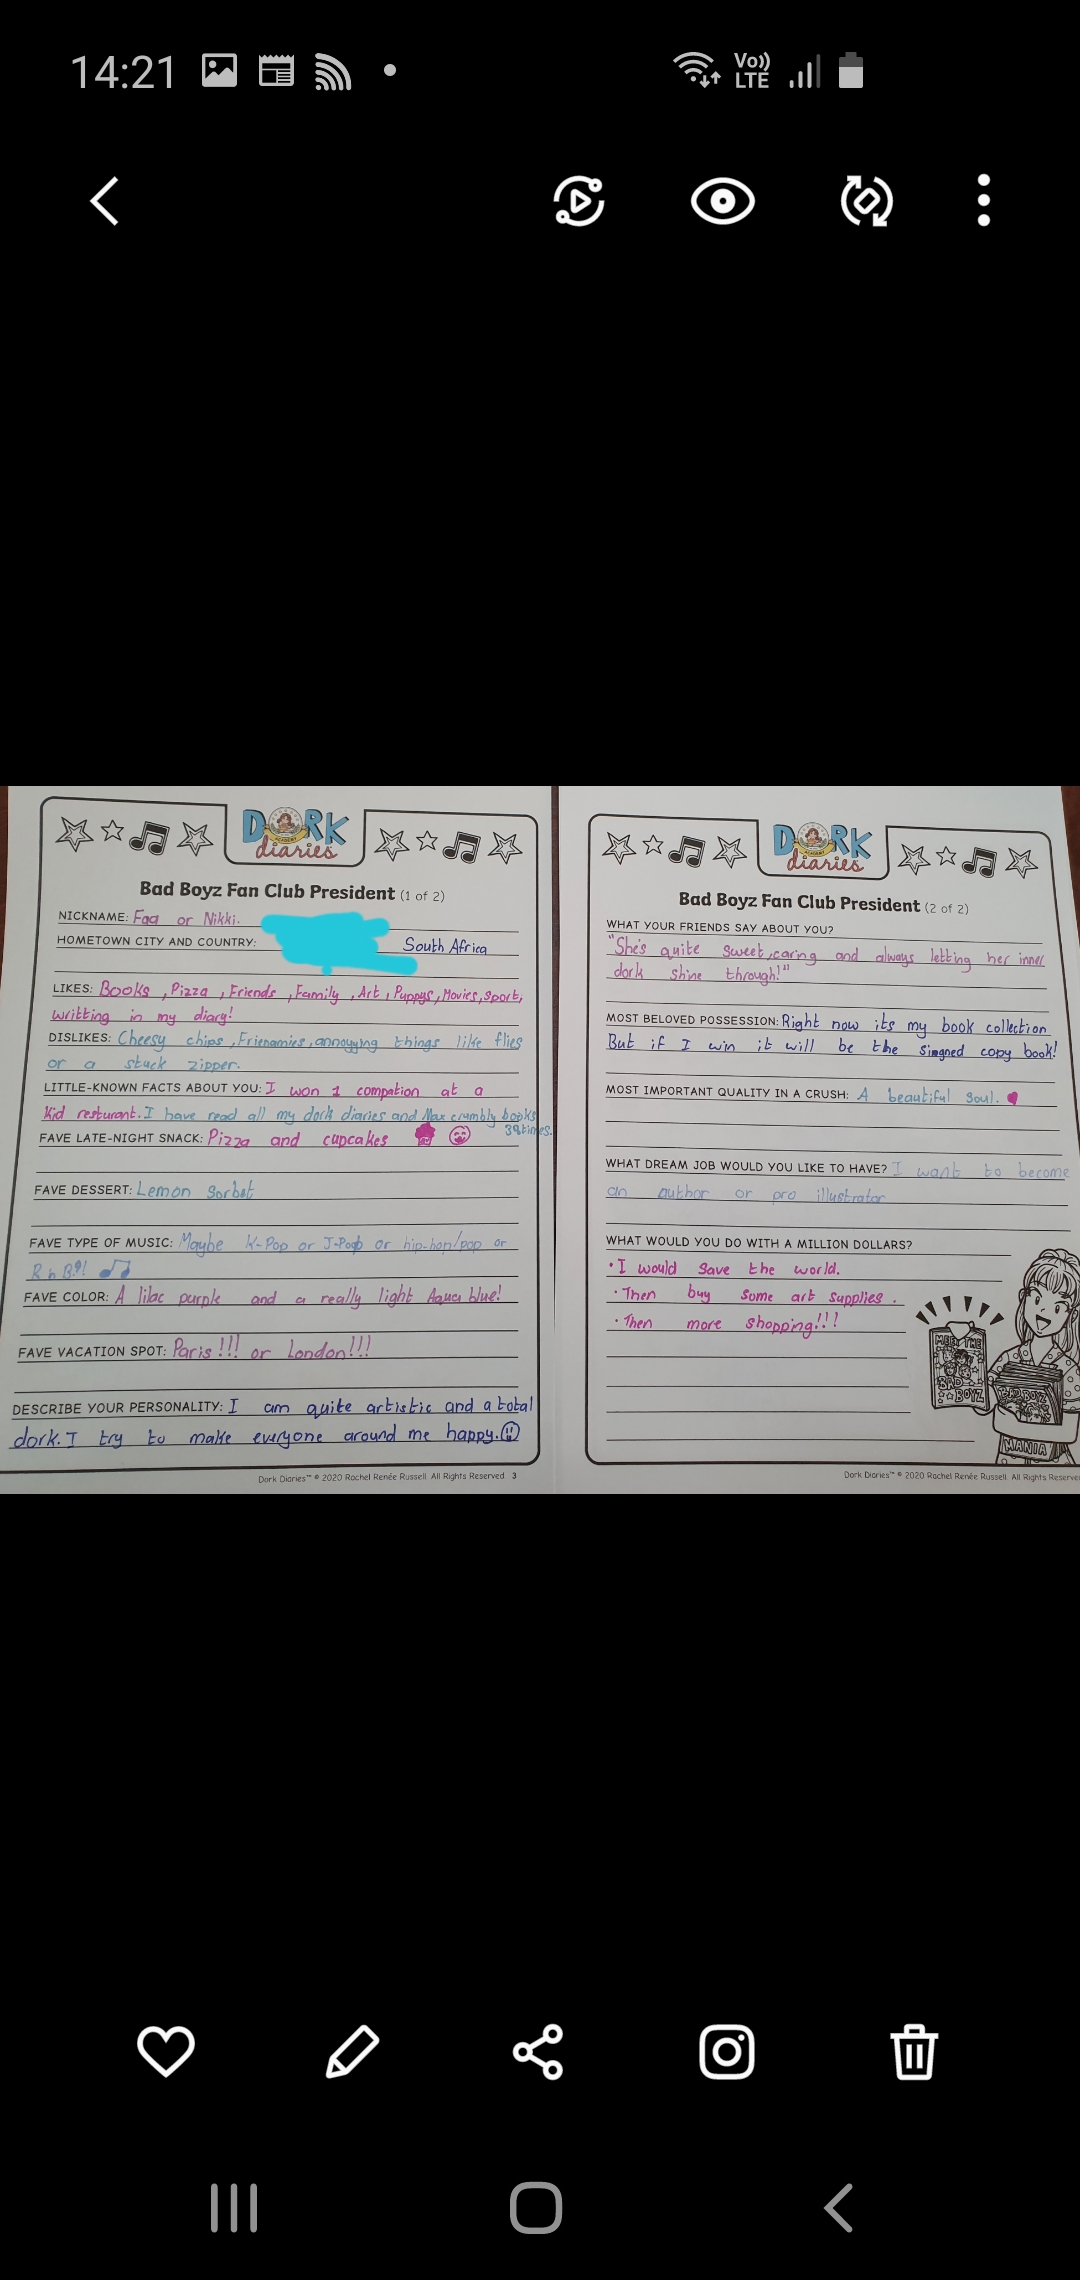 14:21
Vo))
LTE
DORK
diaries
Bad Boyz Fan Club President (1 of 2)
NICKNAME: Faa or Nikki.
HOMETOWN CITY AND COUNTRY: South Africa
LIKES: Books, Pizza, Friends, Family, Art, Puppys, Movies, Sport,
writting in my diary!
DISLIKES: Cheesy chips, Frienamies, annoyying things like flies
or a stuck zipper.
LITTLE-KNOWN FACTS ABOUT YOU: I won 1 compation at a
Kid resturant. I have read all my dork diaries and Max crumbly books
39times.
FAVE LATE-NIGHT SNACK: Pizza and cupcakes
FAVE DESSERT: Lemon Sorbet
FAVE TYPE OF MUSIC: Maybe K-Pop or J-Pop or hip-hop/pop or
R n B?!
FAVE COLOR: A lilac purple and a really light Aqua blue!
FAVE VACATION SPOT: Paris!!! or London!!!
DESCRIBE YOUR PERSONALITY: I am quite artistic and a total
dork. I try to make everyone around me happy.
Dork Diaries™ © 2020 Rachel Renée Russell. All Rights Reserved. 3
DORK
diaries
Bad Boyz Fan Club President (2 of 2)
WHAT YOUR FRIENDS SAY ABOUT YOU?
"She's quite sweet, caring and always letting her inner
dork shine through!"
MOST BELOVED POSSESSION: Right now its my book collection
But if I win it will be the singned copy book!
MOST IMPORTANT QUALITY IN A CRUSH: A beautiful soul.
WHAT DREAM JOB WOULD YOU LIKE TO HAVE? I want to become
an author or pro illustrator
WHAT WOULD YOU DO WITH A MILLION DOLLARS?
• I would save the world.
• Then buy some art supplies.
• Then more shopping!!!
MEET THE
BAD
BOYZ
BAD BOYZ
MANIA
Dork Diaries™ © 2020 Rachel Renée Russell. All Rights Reserve